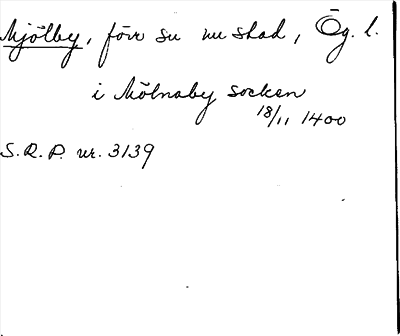 Mjölby, förr su nu stad, Ög. l.
i Mölnaby socken
18/11 1400
S.R.P. nr. 3139